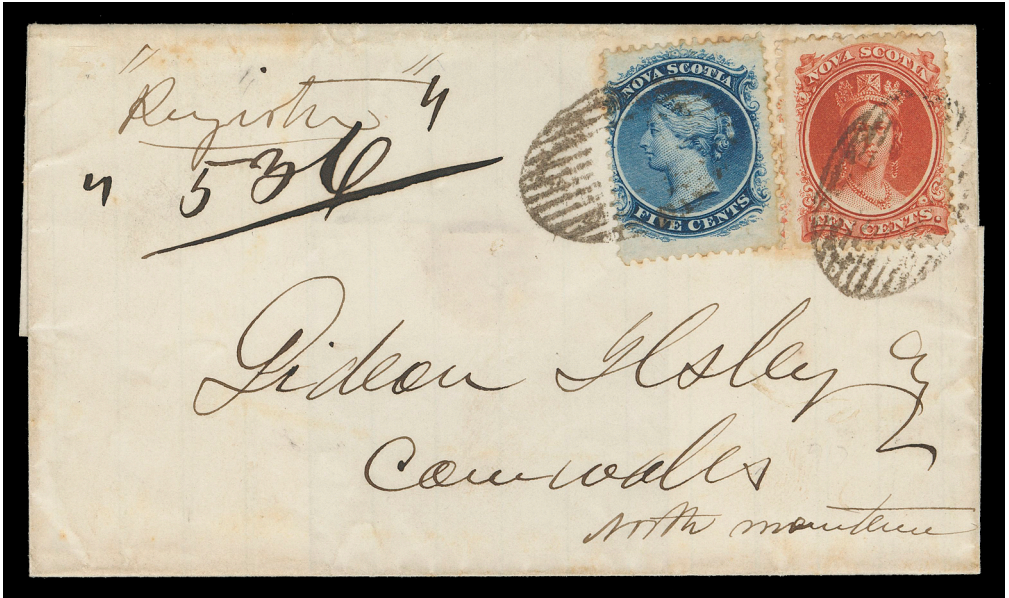 " Register "
" 536 "
NOVA SCOTIA
FIVE CENTS
NOVA SCOTIA
TEN CENTS.
Gideon Ilsley
Cornwales
North Mountain